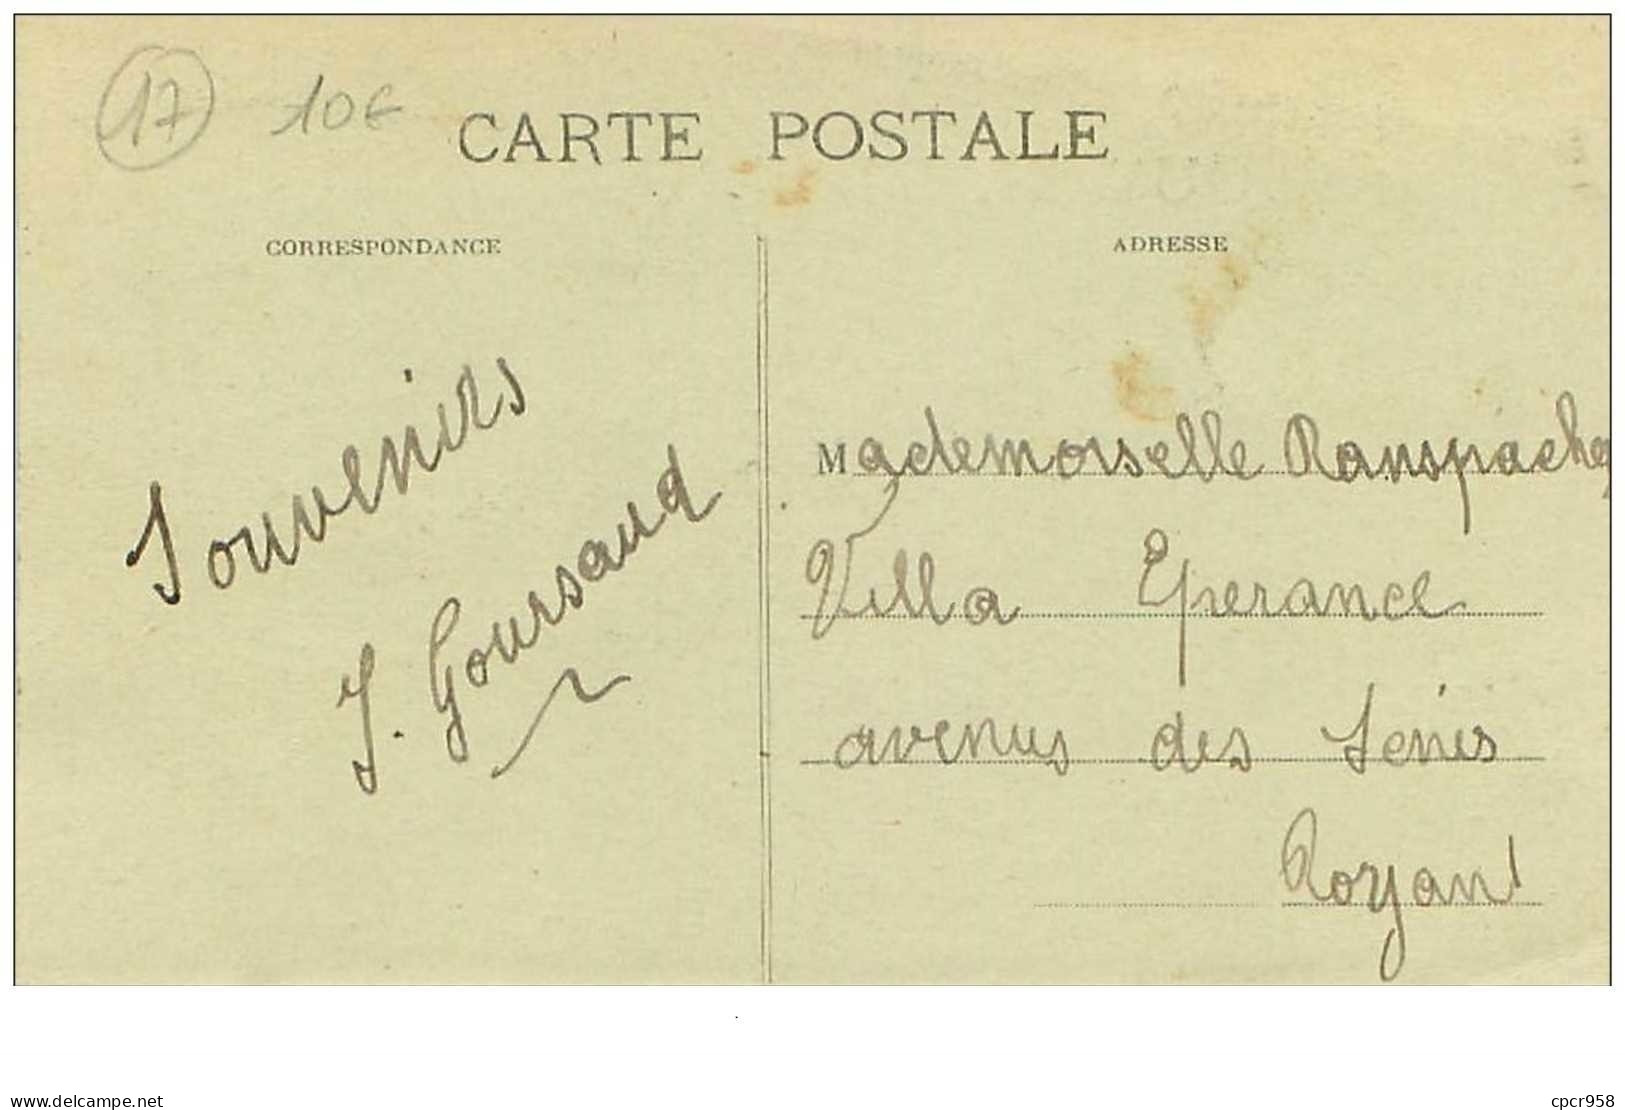 17 10€
CARTE POSTALE
CORRESPONDANCE
ADRESSE
Souvenirs
J. Goursaud
Mademoiselle Ranspacher
Villa Eperance
avenus des
Royan
www.delcampe.net
cpcr958